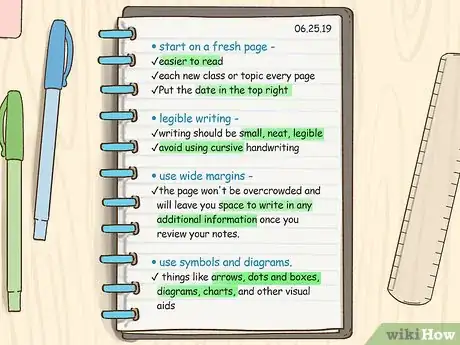 06.25.19
• start on a fresh page -
✓easier to read
✓each new class or topic every page
✓Put the date in the top right
• legible writing -
✓writing should be small, neat, legible
✓avoid using cursive handwriting
• use wide margins -
✓the page won't be overcrowded and
will leave you space to write in any
additional information once you
review your notes.
• use symbols and diagrams.
✓ things like arrows, dots and boxes,
diagrams, charts, and other visual
aids
wikiHow